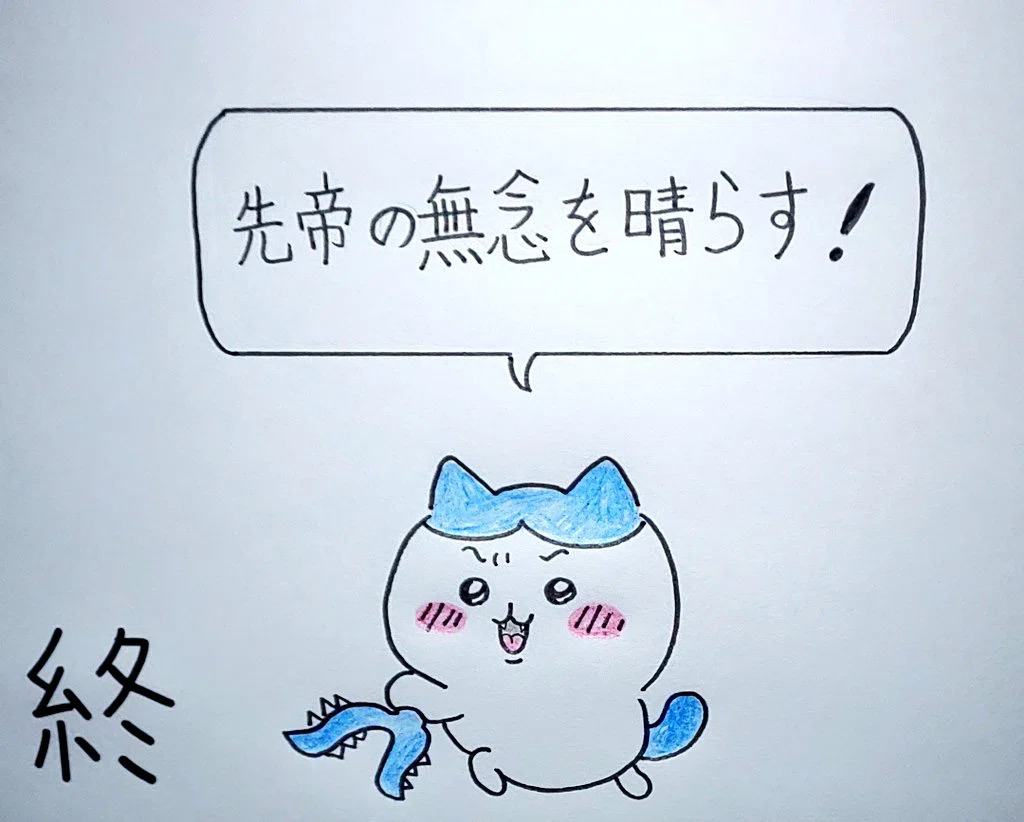 先帝の無念を晴らす!
終